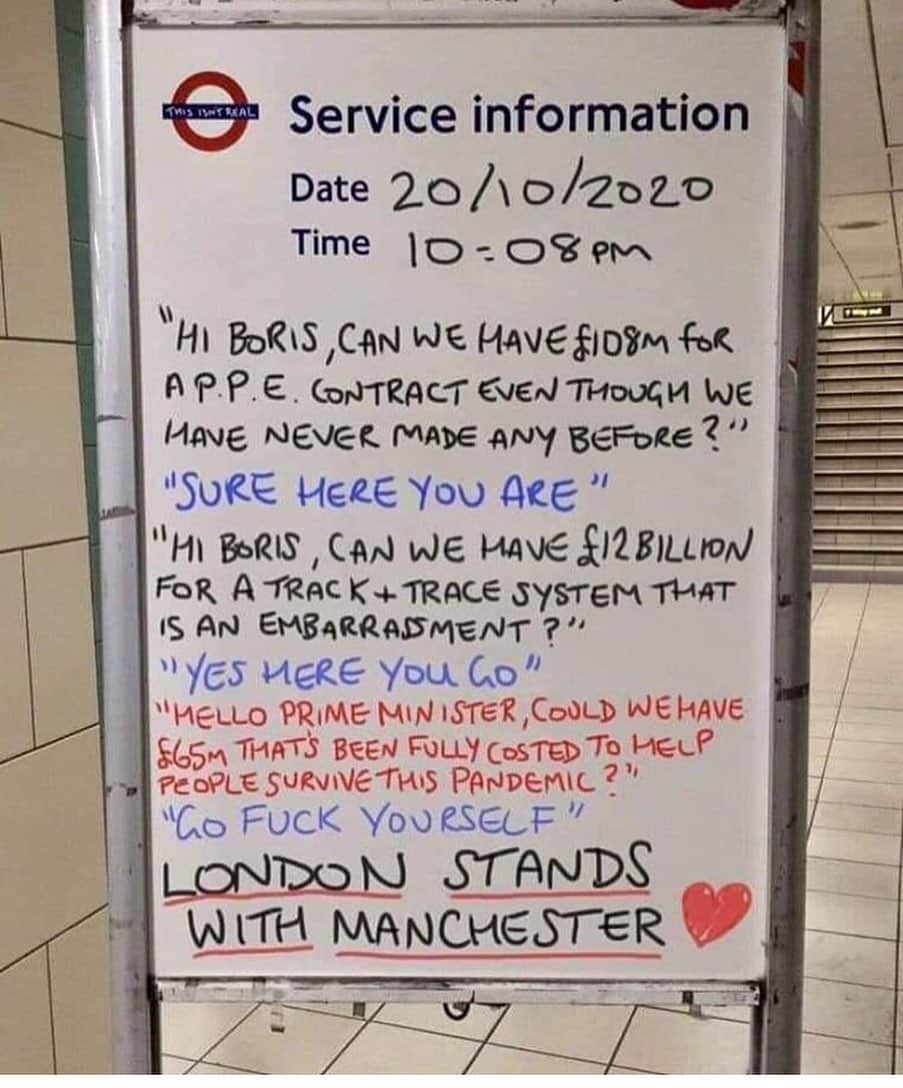 THIS ISN'T REAL
Service information
Date 20/10/2020
Time 10:08 PM
"HI BORIS, CAN WE HAVE £108M FOR
A P.P.E. CONTRACT EVEN THOUGH WE
HAVE NEVER MADE ANY BEFORE?"
"SURE HERE YOU ARE"
"HI BORIS, CAN WE HAVE £12 BILLION
FOR A TRACK + TRACE SYSTEM THAT
IS AN EMBARRASSMENT?"
"YES HERE YOU GO"
"HELLO PRIME MINISTER, COULD WE HAVE
£65M THAT'S BEEN FULLY COSTED TO HELP
PEOPLE SURVIVE THIS PANDEMIC?"
"GO FUCK YOURSELF"
LONDON STANDS
WITH MANCHESTER